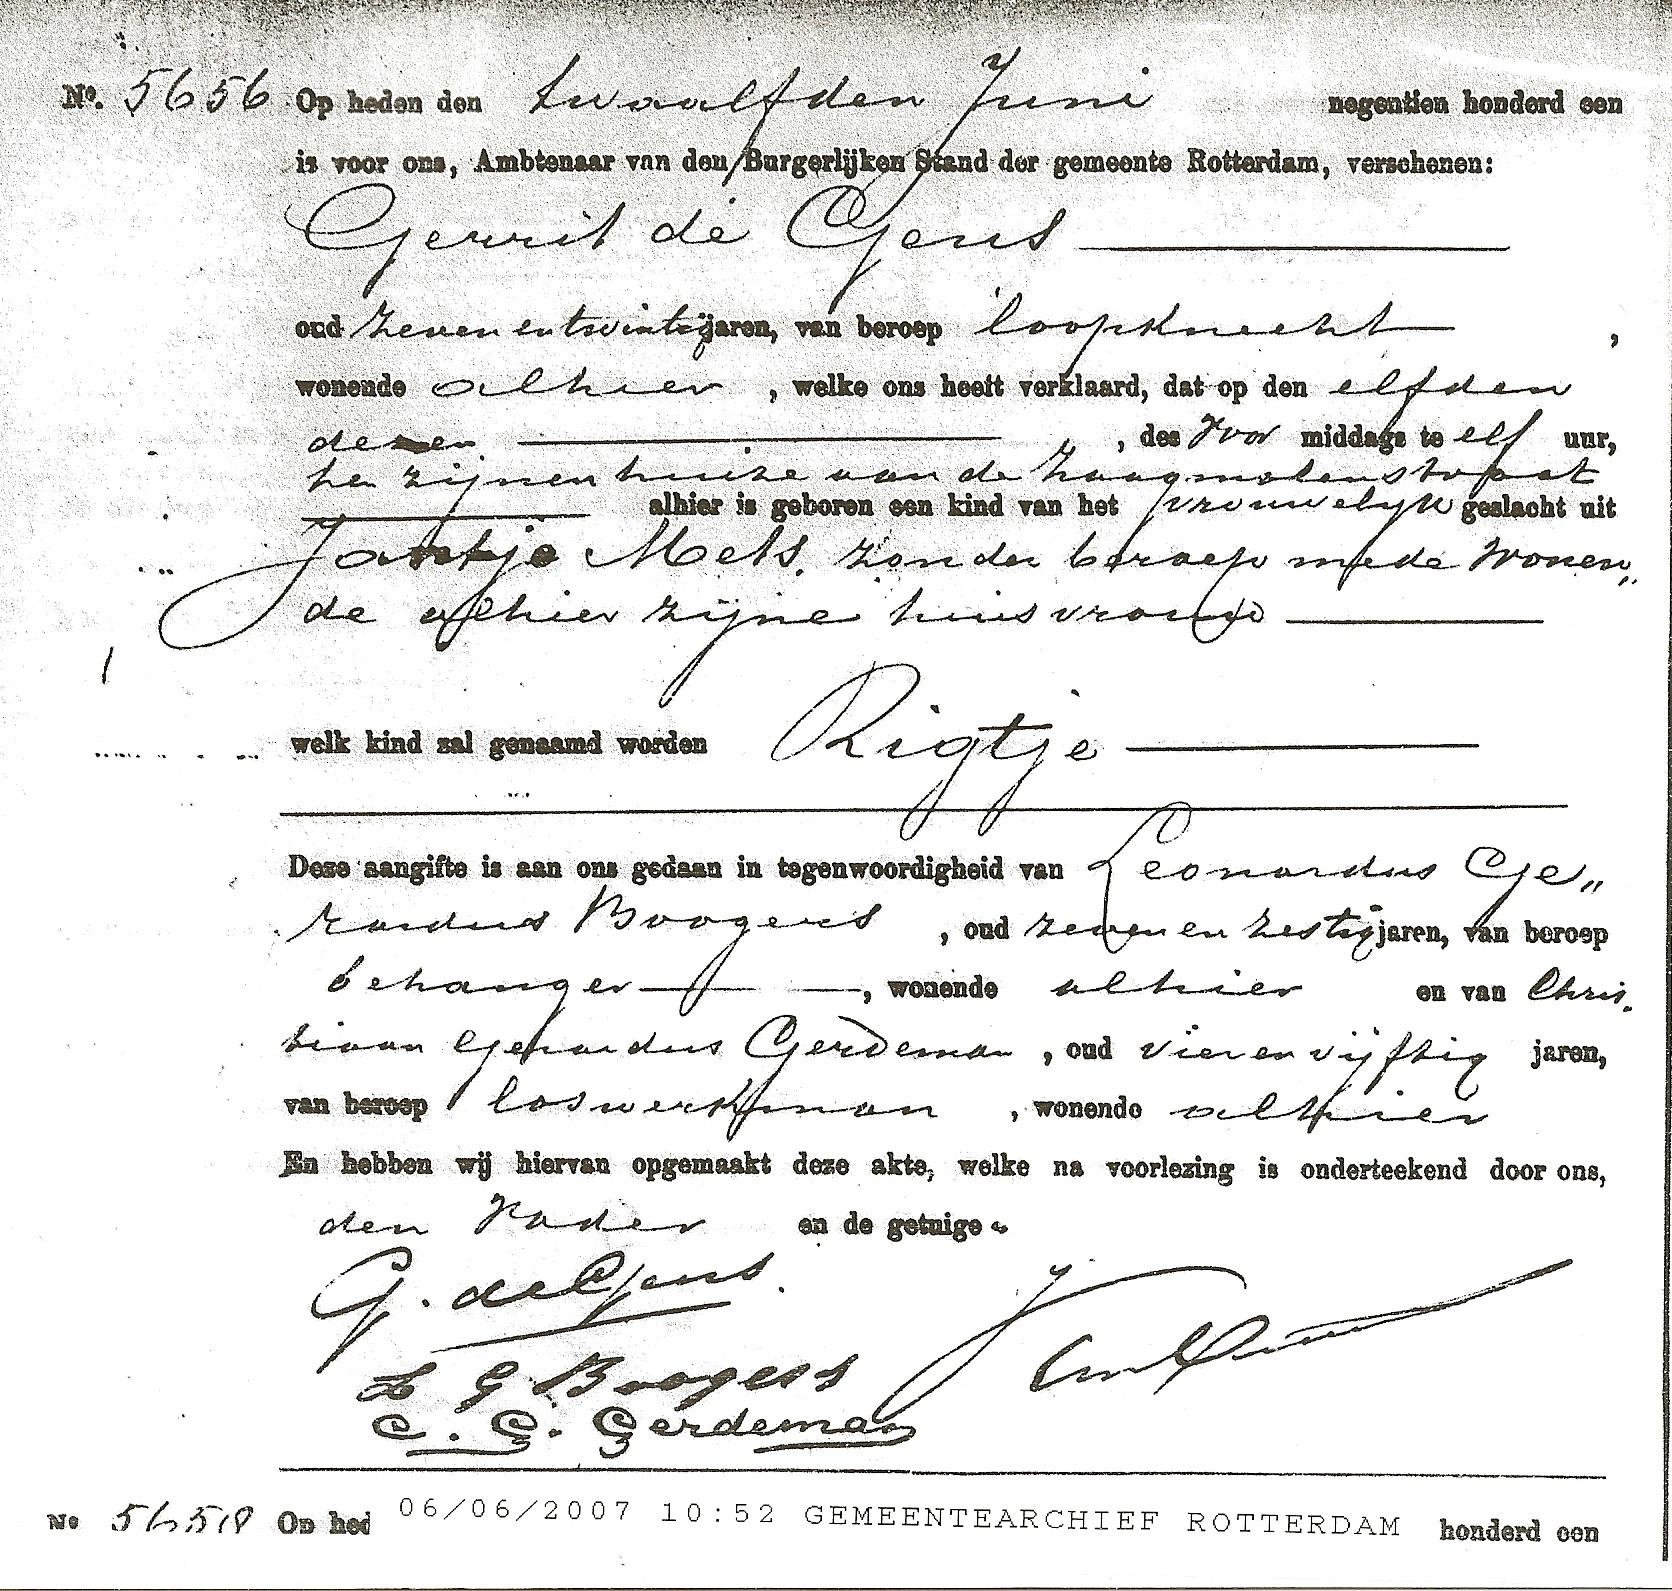 No. 5656 Op heden den twaalfden Juni negentien honderd een
is voor ons, Ambtenaar van den Burgerlijken Stand der gemeente Rotterdam, verschenen:
Gerrit de Geus
oud zeven en twintig jaren, van beroep loopknecht,
wonende alhier, welke ons heeft verklaard, dat op den elfden
dezer, des Voor middags te elf uur,
te zijnen huize aan de Zaagmolenstraat
alhier is geboren een kind van het vrouwelijk geslacht uit
Jantje Mels, zonder beroep mede wonen„
de alhier zijne huisvrouw
welk kind zal genaamd worden Rigtje
Deze aangifte is aan ons gedaan in tegenwoordigheid van Leonardus Ge„
rardus Boogers, oud zeven en zestig jaren, van beroep
behanger, wonende alhier en van Chris.
tiaan Gerardus Gerdeman, oud vier en vijftig jaren,
van beroep loswerkman, wonende alhier
En hebben wij hiervan opgemaakt deze akte, welke na voorlezing is onderteekend door ons,
den Vader en de getuige
G. de Geus.
L G Boogers
C. G. Gerdeman
No 5658 Op hed 06/06/2007 10:52 GEMEENTEARCHIEF ROTTERDAM honderd een